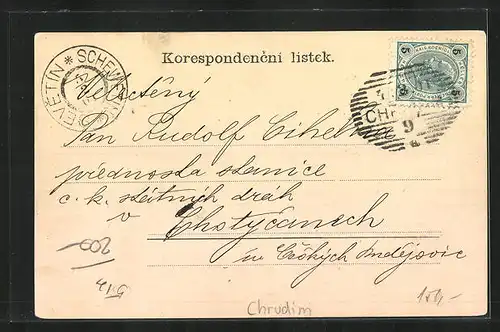 Korespondenční lístek.
ŠEVĚTÍN * SCHEWETIN
5
5
CHR
9
Uctěný
Pan Rudolf Cihelka
přednosta stanice
c. k. státních drah
v
Chotýčanech
u Českých Budějovic
200
Chrudim
150,-